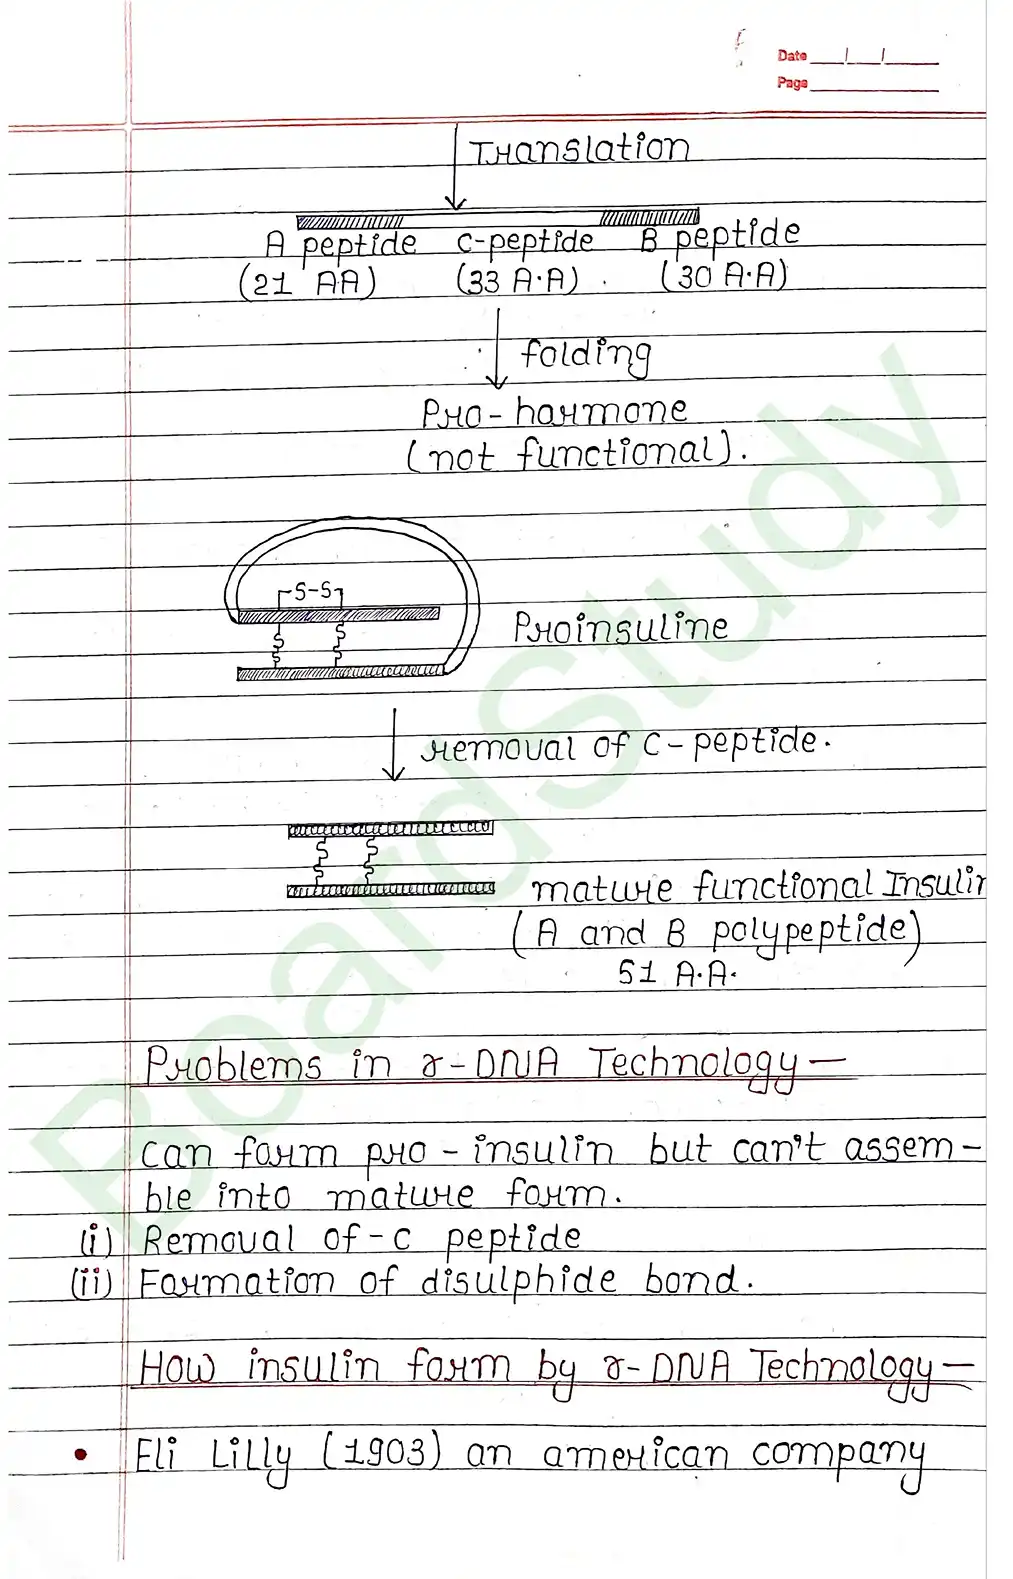 Date
Page
Translation
A peptide C-peptide B peptide
(21 AA) (33 A·A) (30 A·A)
folding
Pro-hormone
(not functional).
S-S
Proinsuline
removal of C-peptide.
mature functional Insulin
(A and B polypeptide)
51 A.A.
Problems in r-DNA Technology—
can form pro-insulin but can't assem-
ble into mature form.
(i) Removal of-c peptide
(ii) Formation of disulphide bond.
How insulin form by r-DNA Technology—
• Eli Lilly (1903) an american company
BoardStudy